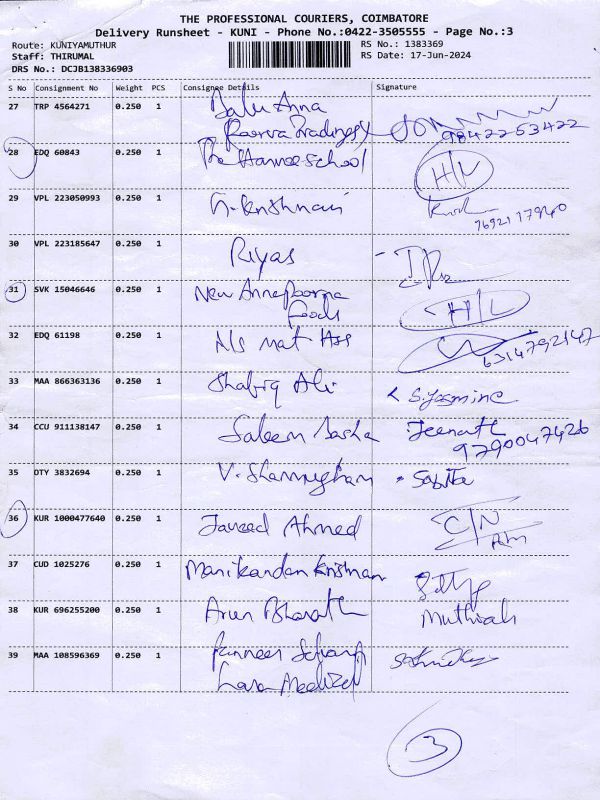 THE PROFESSIONAL COURIERS, COIMBATORE
Delivery Runsheet - KUNI - Phone No.:0422-3505555 - Page No.:3
Route: KUNIYAMUTHUR
RS No.: 1383369
Staff: THIRUMAL
RS Date: 17-Jun-2024
DRS No.: DCJB138336903
S No Consignment No Weight PCS Consignee Details Signature
27 TRP 4564271 0.250 1
Anna
9842253422
28 EDQ 60843 0.250 1 The School H/L
29 VPL 223050993 0.250 1
30 VPL 223185647 0.250 1 Riyas
31 SVK 15046646 0.250 1 New Annapoorna H/L
Foods
32 EDQ 61198 0.250 1 N/s Mat Hss
6314792147
33 MAA 866363136 0.250 1 Shafiq Ali S. Jasmine
34 CCU 911138147 0.250 1 Saleem Basha Jeenath
9790047426
35 DTY 3832694 0.250 1 V. Shanmugham Sabitha
36 KUR 1000477640 0.250 1 Javeed Ahmed C/N
37 CUD 1025276 0.250 1 Manikandan Krishnan
38 KUR 696255200 0.250 1 Arun Bharath Muthiah
39 MAA 108596369 0.250 1
3